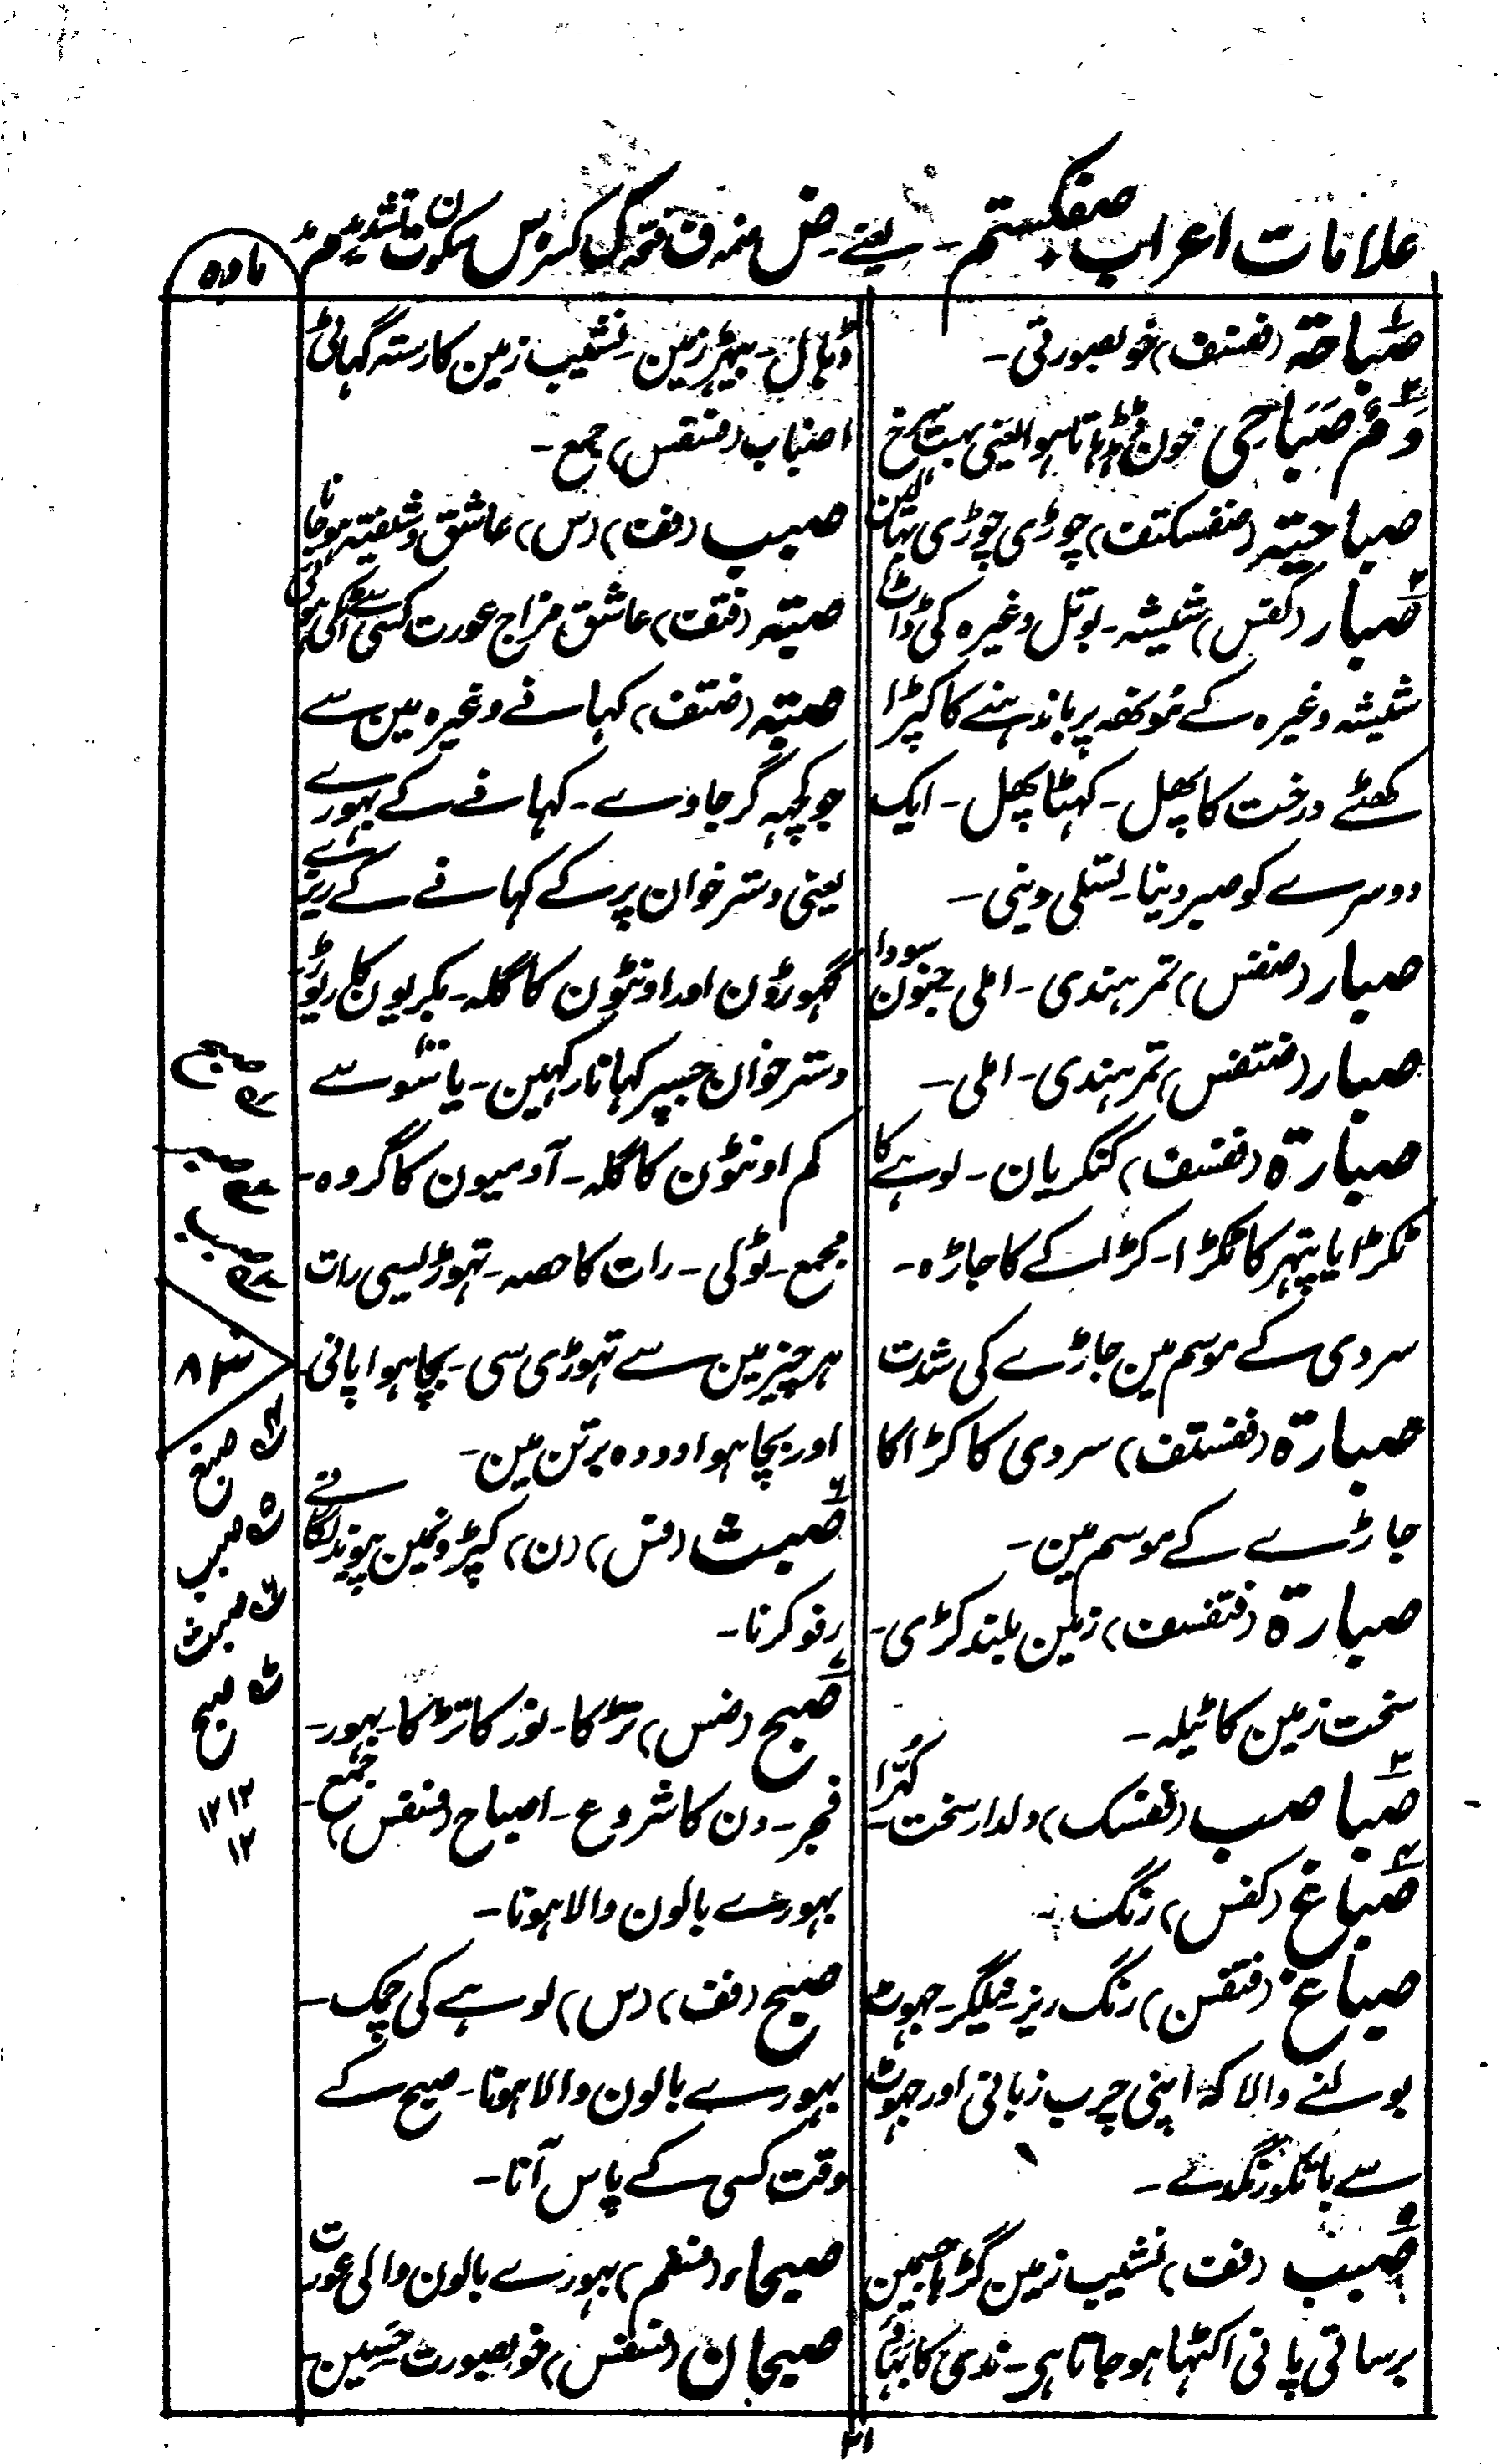 علامات اعراب صفکستم - یعنے - ض ضمہ ف فتحہ ک کسرہ س سکون ت تشدید م مد
مادہ
صباحة (فتفتف) خوبصورتی -
دَمٌ صَبَاحِی خون ڈہڈہاتا ہوا یعنی بہت سرخ
صباحیّہ (ضفسکتف) چوڑی چوڑی بہالین
صبار (کفس) شیشہ - بوتل وغیرہ کی ڈاٹ
شیشہ وغیرہ کے مونھہ پر باندہنے کا کپڑا
کھٹے درخت کا پھل - کہٹا پھل - ایک
دوسرے کو صبر دینا - تسلی دینی -
صبار (ضفس) تمر ہندی - املی جنون سودا
صبار (ضتفس) تمر ہندی - املی -
صبارة (ففسف) کنکریان - لوہے کا
ٹکڑا یا پتہر کا ٹکڑا - کڑاکے کا جاڑہ -
سردی کے موسم مین جاڑے کی شدت
صبارة (ففستف) سردی کا کڑاکا
جاڑے کے موسم مین -
صبارة (فتفسف) زمین بلند کڑی -
سخت زمین کا ٹیلہ -
صباصب (ففسک) ولدار سخت - کہّرا
صباغ (کفس) رنگ -
صباغ (فتفس) رنگ ریز - نیلگر - جہوٹ
بولنے والا کہ اپنی چرب زبانی اور جہوٹ
سے باتکو رنگدے -
صبب (فف) نشیب زمین گڑہا جسمین
برساتی پانی اکٹہا ہو جاتا ہی - ندی کا بہاؤ
ڈہال - بیہڑ زمین - نشیب زمین کا رستہ گہاٹی
اصباب (فسفس) جمع -
صبب (فف) (س) عاشق و شیفتہ ہو جانا
صبّہ (فتف) عاشق مزاج عورت کسی سے اٹکی ہوئی
صبّہ (ضتف) کہانے وغیرہ مین سے
جو کچہہ گر جاوے - کہانے کے بہورے
یعنی دستر خوان پر کے کہانے کے ریزے
گہوڑون اور اونٹون کا گلہ - بکریون کا ریوڑ
دستر خوان جسپر کہانا رکہین - یا سو سے
کم اونٹون کا گلہ - آدمیون کا گروہ -
مجمع - ٹولی - رات کا حصہ - تہوڑیسی رات
ہر چیز مین سے تہوڑی سی - بچا ہوا پانی -
اور بچا ہوا دودہ برتن مین -
صبث (فس) (ن) کپڑونمین پیوند لگانے
رفو کرنا -
صبح (ضس) تڑکا - نور کا تڑکا - بہور -
فجر - دن کا شروع - اصباح (فسفس) جمع -
بہورے بالون والا ہونا -
صبح (فف) (س) لوہے کی چمک -
بہورے بالون والا ہونا - صبح کے
وقت کسی کے پاس آنا -
صبحاء (فسفم) بہورے بالون والی عورت
صبحان (فسفس) خوبصورت حسین
صبح
صبر
صبب
۸۳
صبغ
صبب
صبث
صبح
۱۲ ۱۲
۱۲
۲۱